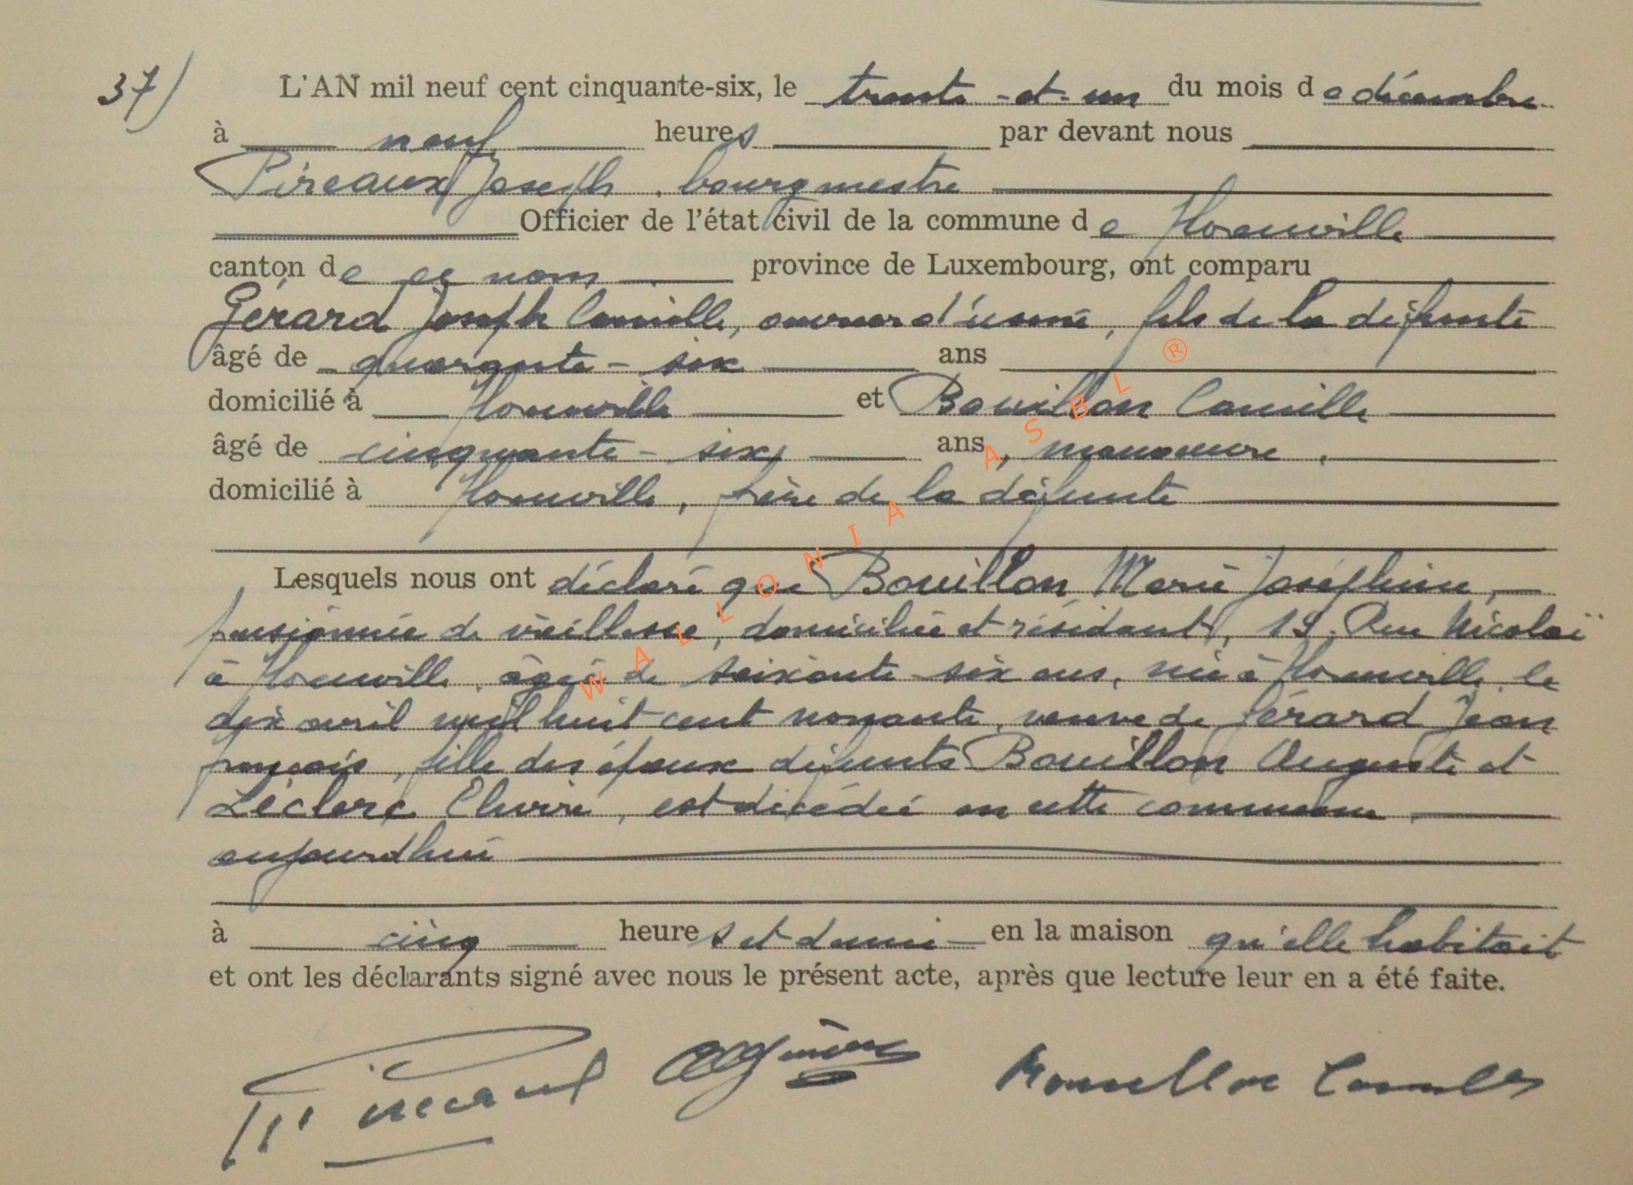 37/ L'AN mil neuf cent cinquante-six, le trente-et-un du mois de décembre
à neuf heures par devant nous
Pireaux Joseph, bourgmestre
Officier de l'état civil de la commune de Florenville
canton de ce nom province de Luxembourg, ont comparu
Gérard Joseph Camille, ouvrier d'usine, fils de la défunte
âgé de quarante-six ans
domicilié à Florenville et Bouillon Camille
âgé de cinquante-six ans, manoeuvre,
domicilié à Florenville, frère de la défunte
Lesquels nous ont déclaré que Bouillon Marie Joséphine,
pensionnée de vieillesse, domiciliée et résidant, Rue Nicolaï
à Florenville, âgée de soixante-six ans, née à Florenville, le
dix avril mil huit cent nonante, veuve de Gérard Jean
François, fille des époux défunts Bouillon Auguste et
Leclerc Elvire, est décédée en cette commune,
aujourd'hui
à cinq heures et demie en la maison qu'elle habitait
et ont les déclarants signé avec nous le présent acte, après que lecture leur en a été faite.
Bouillon Camille
WALLONIA ASBL ®